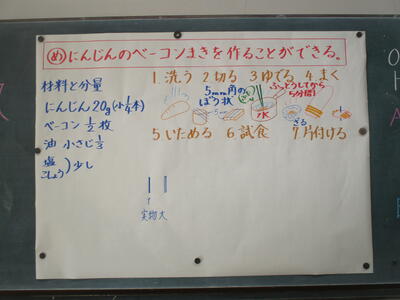 め にんじんのベーコンまきを作ることができる。
材料と分量
にんじん20g(小1/4本)
ベーコン 1/2枚
油 小さじ1/2
塩
こしょう)少し
1.洗う 2切る 3ゆでる 4.まく
5mm角の
ぼう状
水
ふっとうしてから
5分間!
ざる
5いためる 6試食 7片付ける
実物大